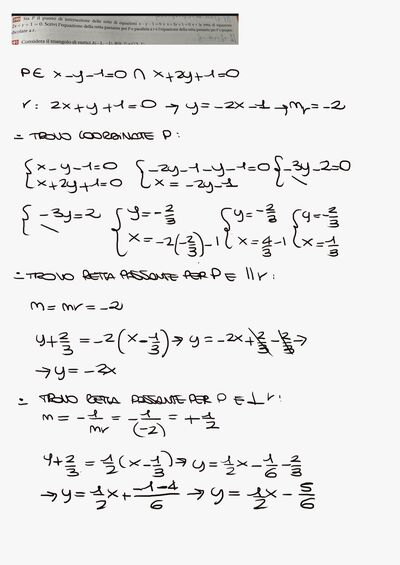 Sia P il punto di intersezione delle rette di equazioni x - y - 1 = 0 e x + 2y + 1 = 0 e r la retta di equazione
2x + y + 1 = 0. Scrivi l'equazione della retta passante per P e parallela a r e l'equazione della retta passante per P e perpen-
dicolare a r.
Considera il triangolo di vertici
P ∈ x-y-1=0 ∩ x+2y+1=0
r: 2x+y+1=0 → y=-2x-1 → mr=-2
- TROVO COORDINATE P:
{x-y-1=0 {-2y-1-y-1=0 {-3y-2=0
{x+2y+1=0 {x=-2y-1 {\
{-3y=2 {y=-2/3 {y=-2/3 {y=-2/3
{\ {x=-2(-2/3)-1 {x=4/3-1 {x=1/3
- TROVO RETTA PASSANTE PER P E ∥ r:
m=mr=-2
y+2/3=-2(x-1/3) → y=-2x+2/3-2/3 →
→ y=-2x
- TROVO RETTA PASSANTE PER P E ⊥ r:
m=-1/mr=-1/(-2)=+1/2
y+2/3=1/2(x-1/3) → y=1/2x-1/6-2/3
→ y=1/2x+(-1-4)/6 → y=1/2x-5/6